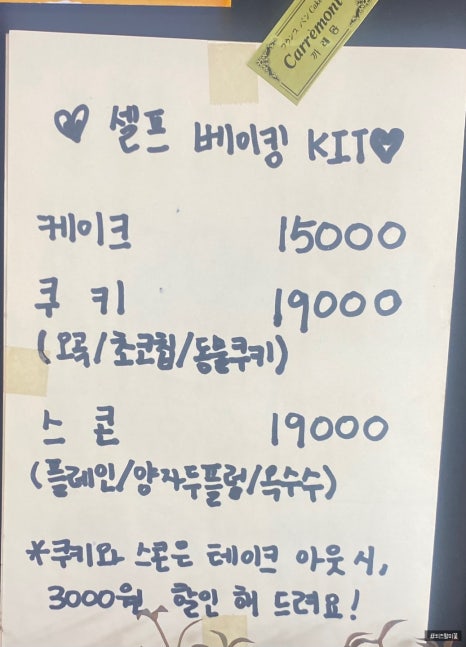 Carrémont
까레몽
♥ 셀프 베이킹 KIT♥
케이크 15000
쿠키 19000
(오곡/초코칩/동물쿠키)
스콘 19000
(플레인/양자두플럼/옥수수)
*쿠키와 스콘은 테이크 아웃 시,
3000원 할인 해 드려요!